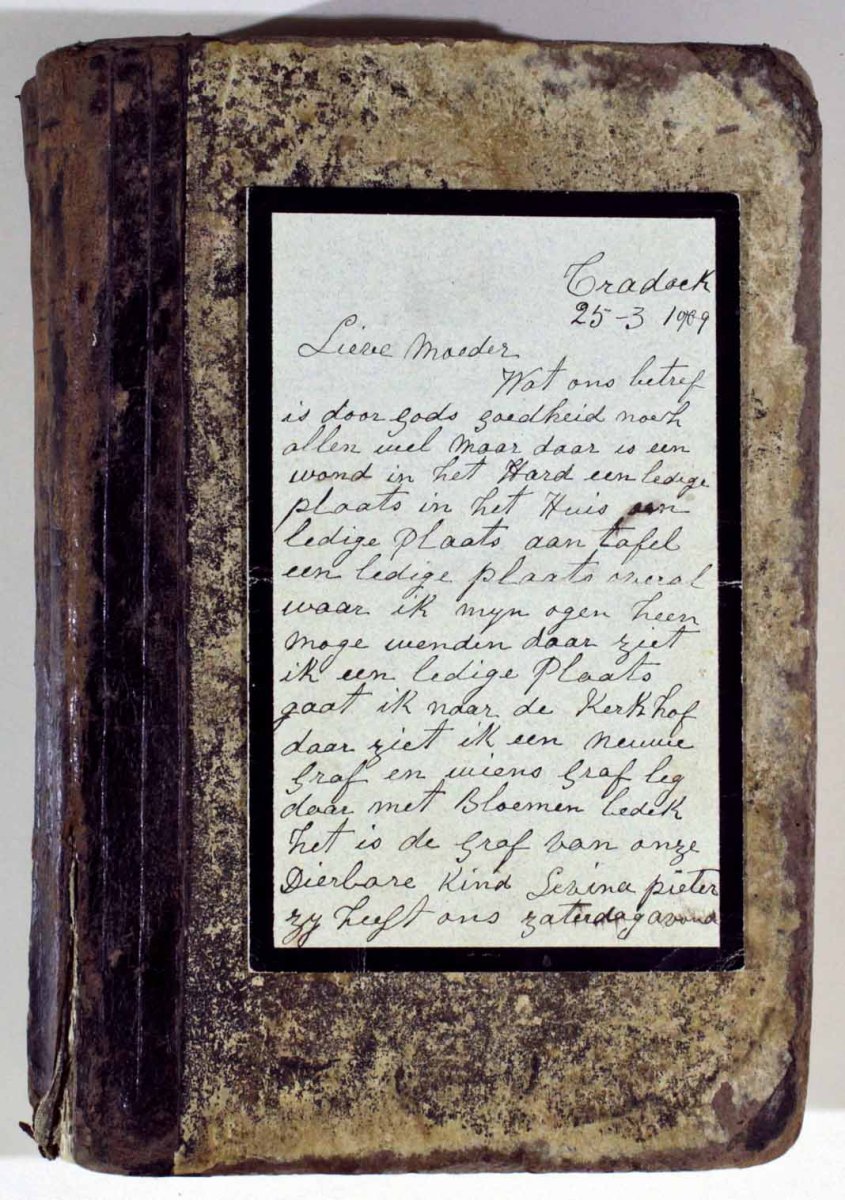 Cradock
25-3 1909
Lieve Moeder
Wat ons betref
is door gods goedheid noch
allen wel maar daar is een
wond in het Hard een ledige
plaats in het Huis een
ledige plaats aan tafel
een ledige plaats overal
waar ik myn ogen heen
moge wenden daar ziet
ik een ledige Plaats
gaat ik naar de Kerkhof
daar ziet ik een neuwe
graf en wiens graf leg
daar met Bloemen bedek
het is de graf van onze
Dierbare Kind Levina pieter
zy heeft ons zaterdag avond